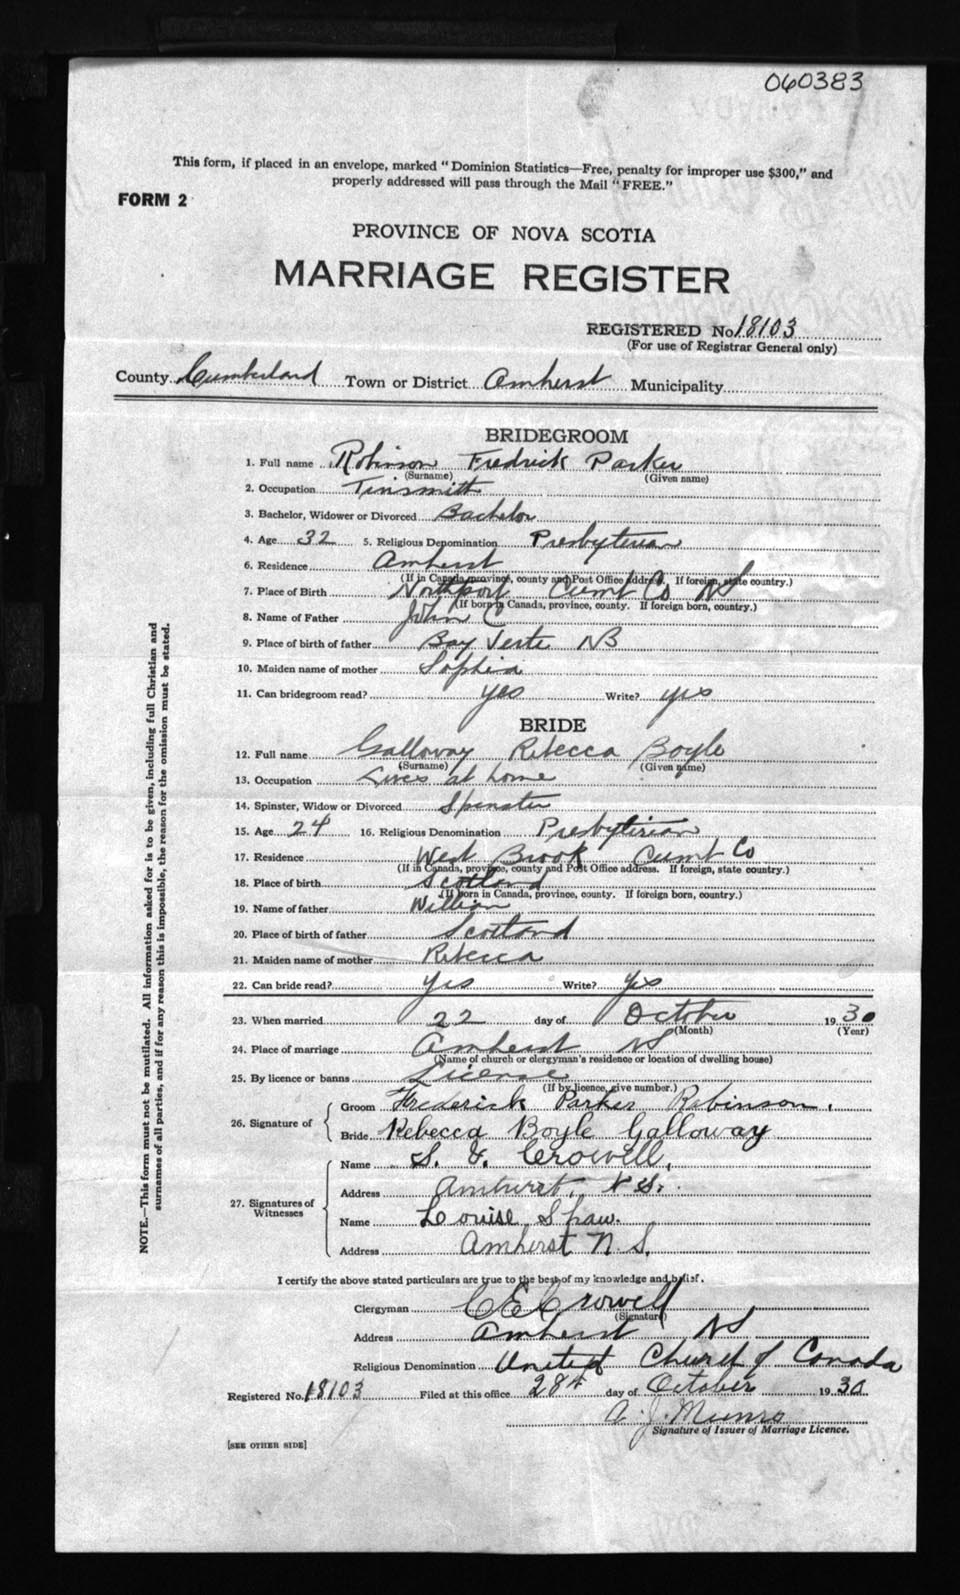 060383
This form, if placed in an envelope, marked "Dominion Statistics—Free, penalty for improper use $300," and
properly addressed will pass through the Mail "FREE."
FORM 2
PROVINCE OF NOVA SCOTIA
MARRIAGE REGISTER
REGISTERED No. 18103
(For use of Registrar General only)
County Cumberland Town or District Amherst Municipality
BRIDEGROOM
1. Full name Robinson Fredrick Parker
(Surname) (Given name)
2. Occupation Tinsmith
3. Bachelor, Widower or Divorced Bachelor
4. Age 32 5. Religious Denomination Presbyterian
6. Residence Amherst
(If in Canada, province, county and Post Office address. If foreign, state country.)
7. Place of Birth Northport Cumt Co NS
(If born in Canada, province, county. If foreign born, country.)
8. Name of Father John C
9. Place of birth of father Bay Verte NB
10. Maiden name of mother Sophia
11. Can bridegroom read? yes Write? yes
BRIDE
12. Full name Galloway Rebecca Boyle
(Surname) (Given name)
13. Occupation Lives at home
14. Spinster, Widow or Divorced Spinster
15. Age 24 16. Religious Denomination Presbyterian
17. Residence West Brook Cumt Co
(If in Canada, province, county and Post Office address. If foreign, state country.)
18. Place of birth Scotland
(If born in Canada, province, county. If foreign born, country.)
19. Name of father William
20. Place of birth of father Scotland
21. Maiden name of mother Rebecca
22. Can bride read? yes Write? yes
23. When married 22 day of October 1930
(Month) (Year)
24. Place of marriage Amherst NS
(Name of church or clergyman's residence or location of dwelling house)
25. By licence or banns License
(If by licence, give number.)
26. Signature of
Groom Frederick Parker Robinson.
Bride Rebecca Boyle Galloway
27. Signatures of Witnesses
Name S. E. Crowell,
Address Amherst, N.S.
Name Louise Shaw.
Address Amherst N.S.
I certify the above stated particulars are true to the best of my knowledge and belief.
Clergyman C E Crowell
(Signature)
Address Amherst NS
Religious Denomination United Church of Canada
Registered No. 18103 Filed at this office 28th day of October 1930
A. J. Munro
Signature of Issuer of Marriage Licence.
[SEE OTHER SIDE]
NOTE.—This form must not be mutilated. All information asked for is to be given, including full Christian and
surnames of all parties, and if for any reason this is impossible, the reason for the omission must be stated.